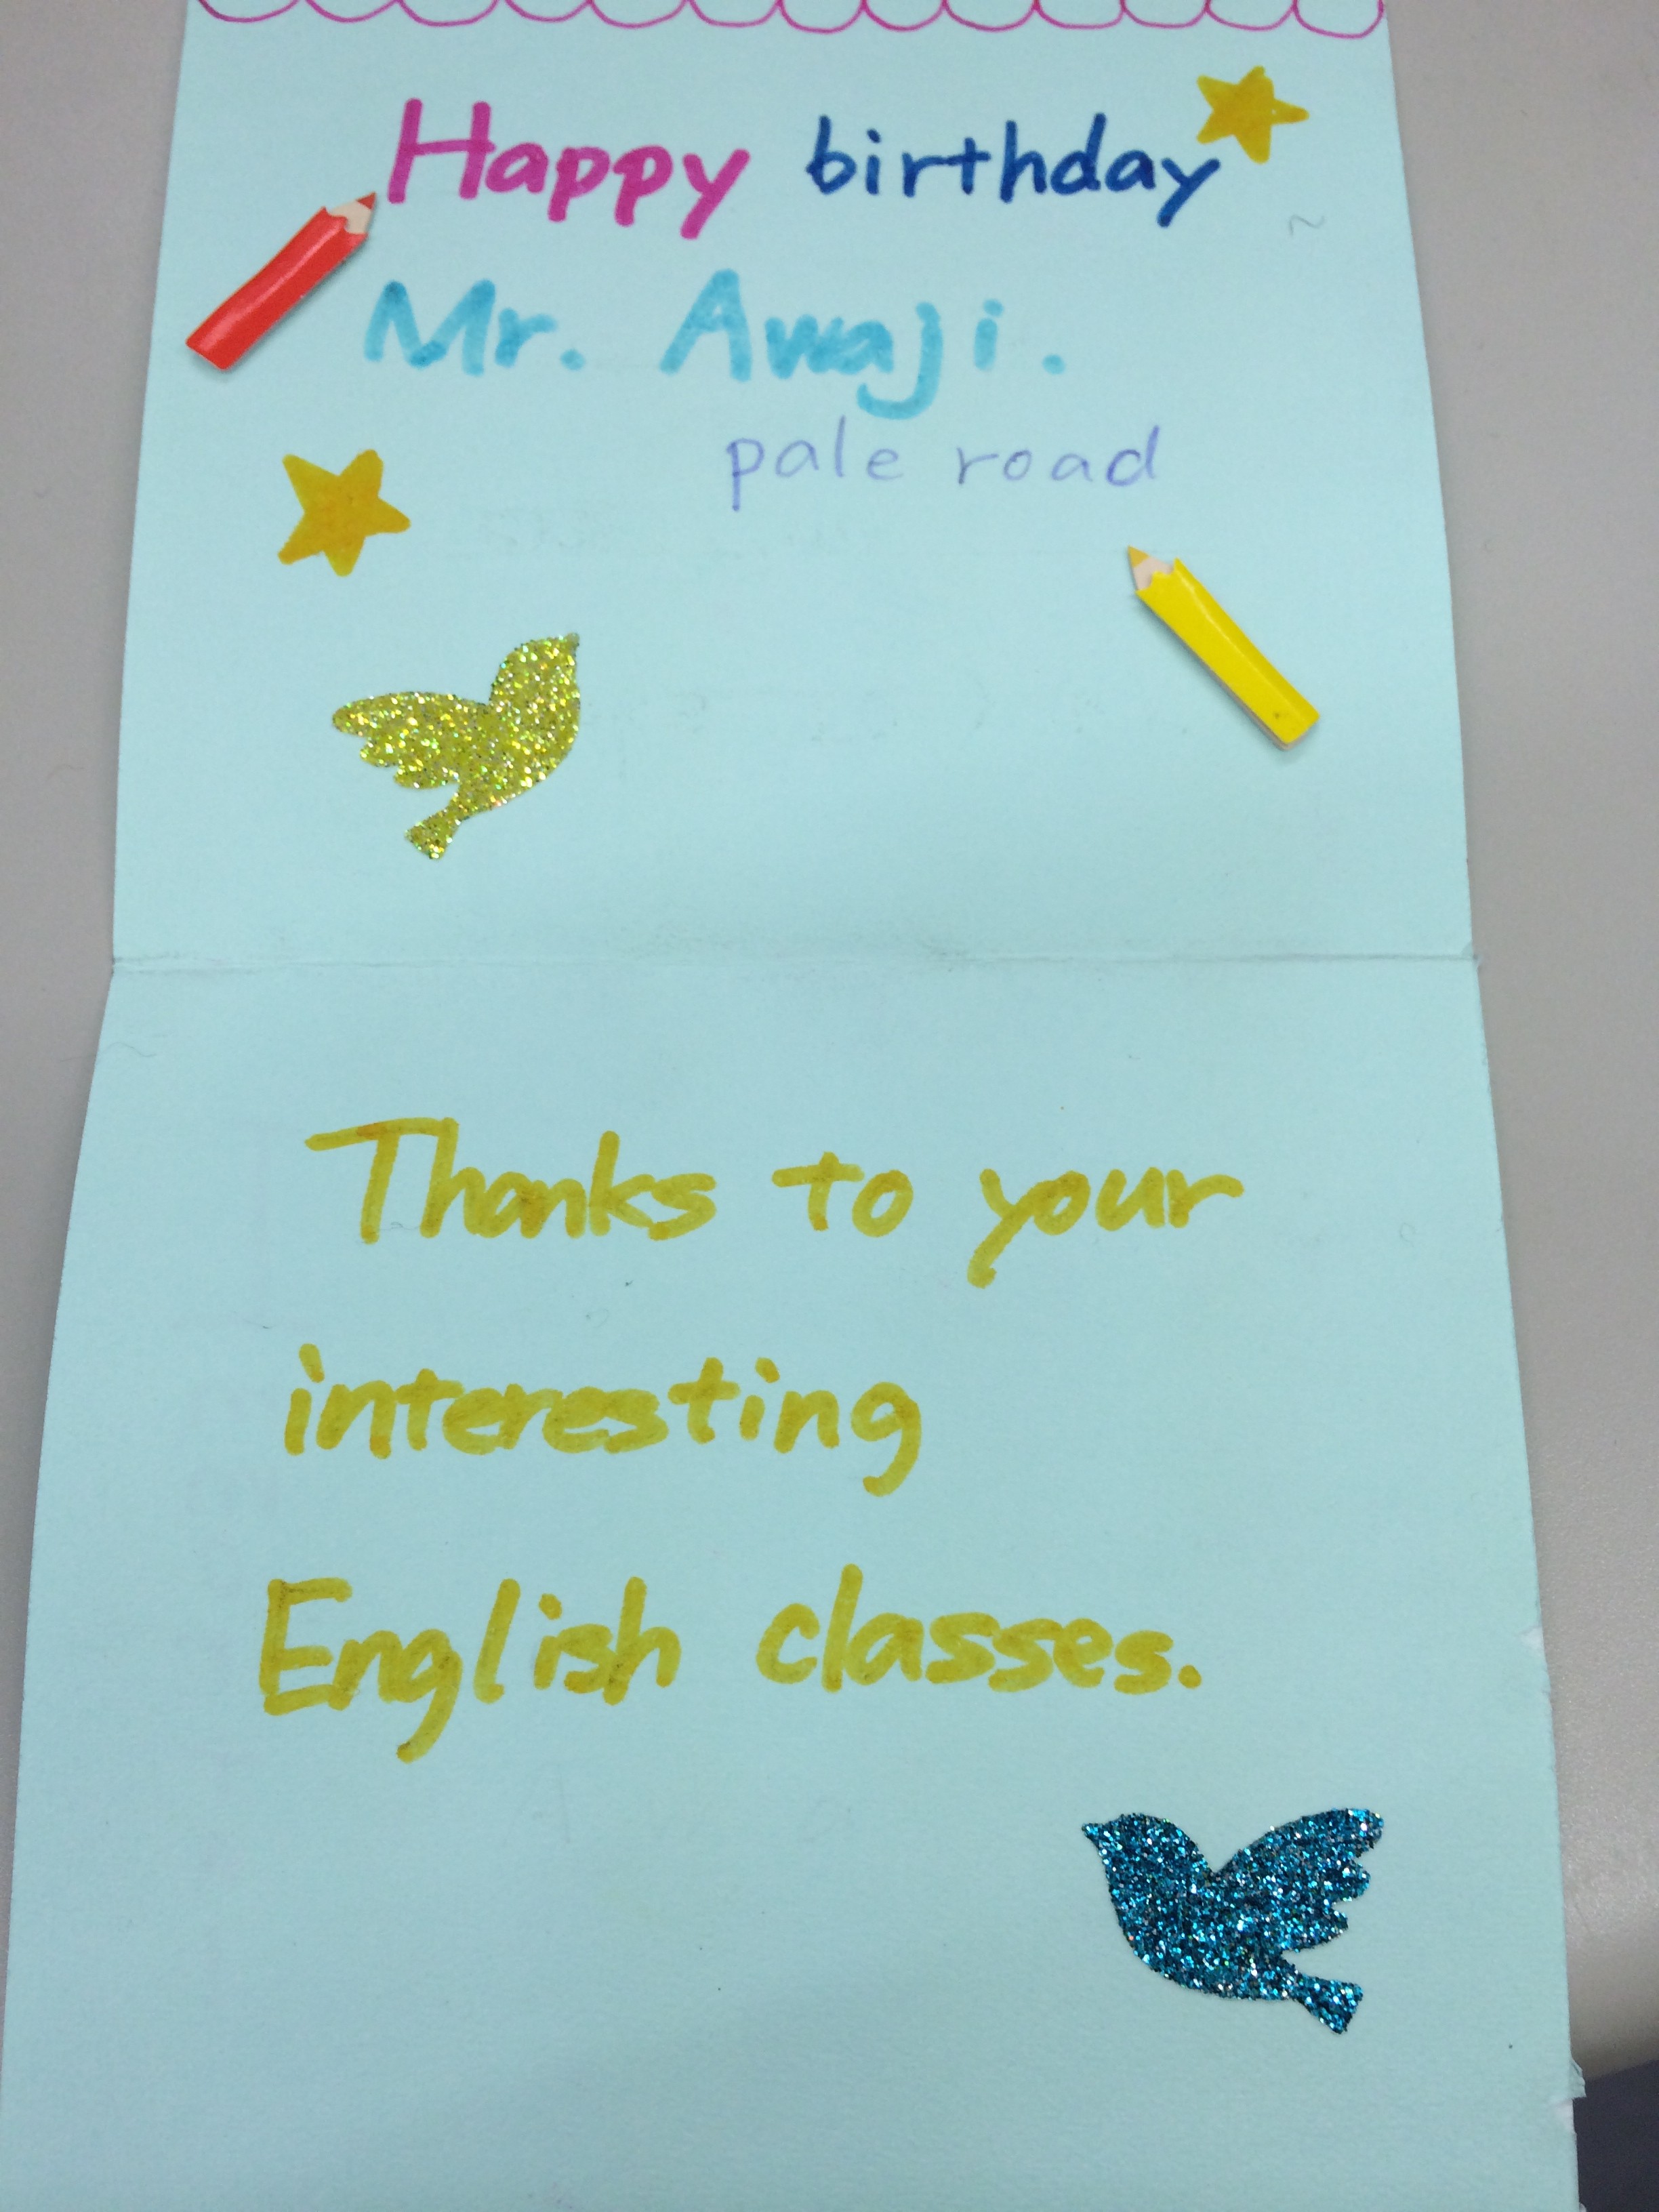 Happy birthday
Mr. Awaji.
pale road
Thanks to your
interesting
English classes.